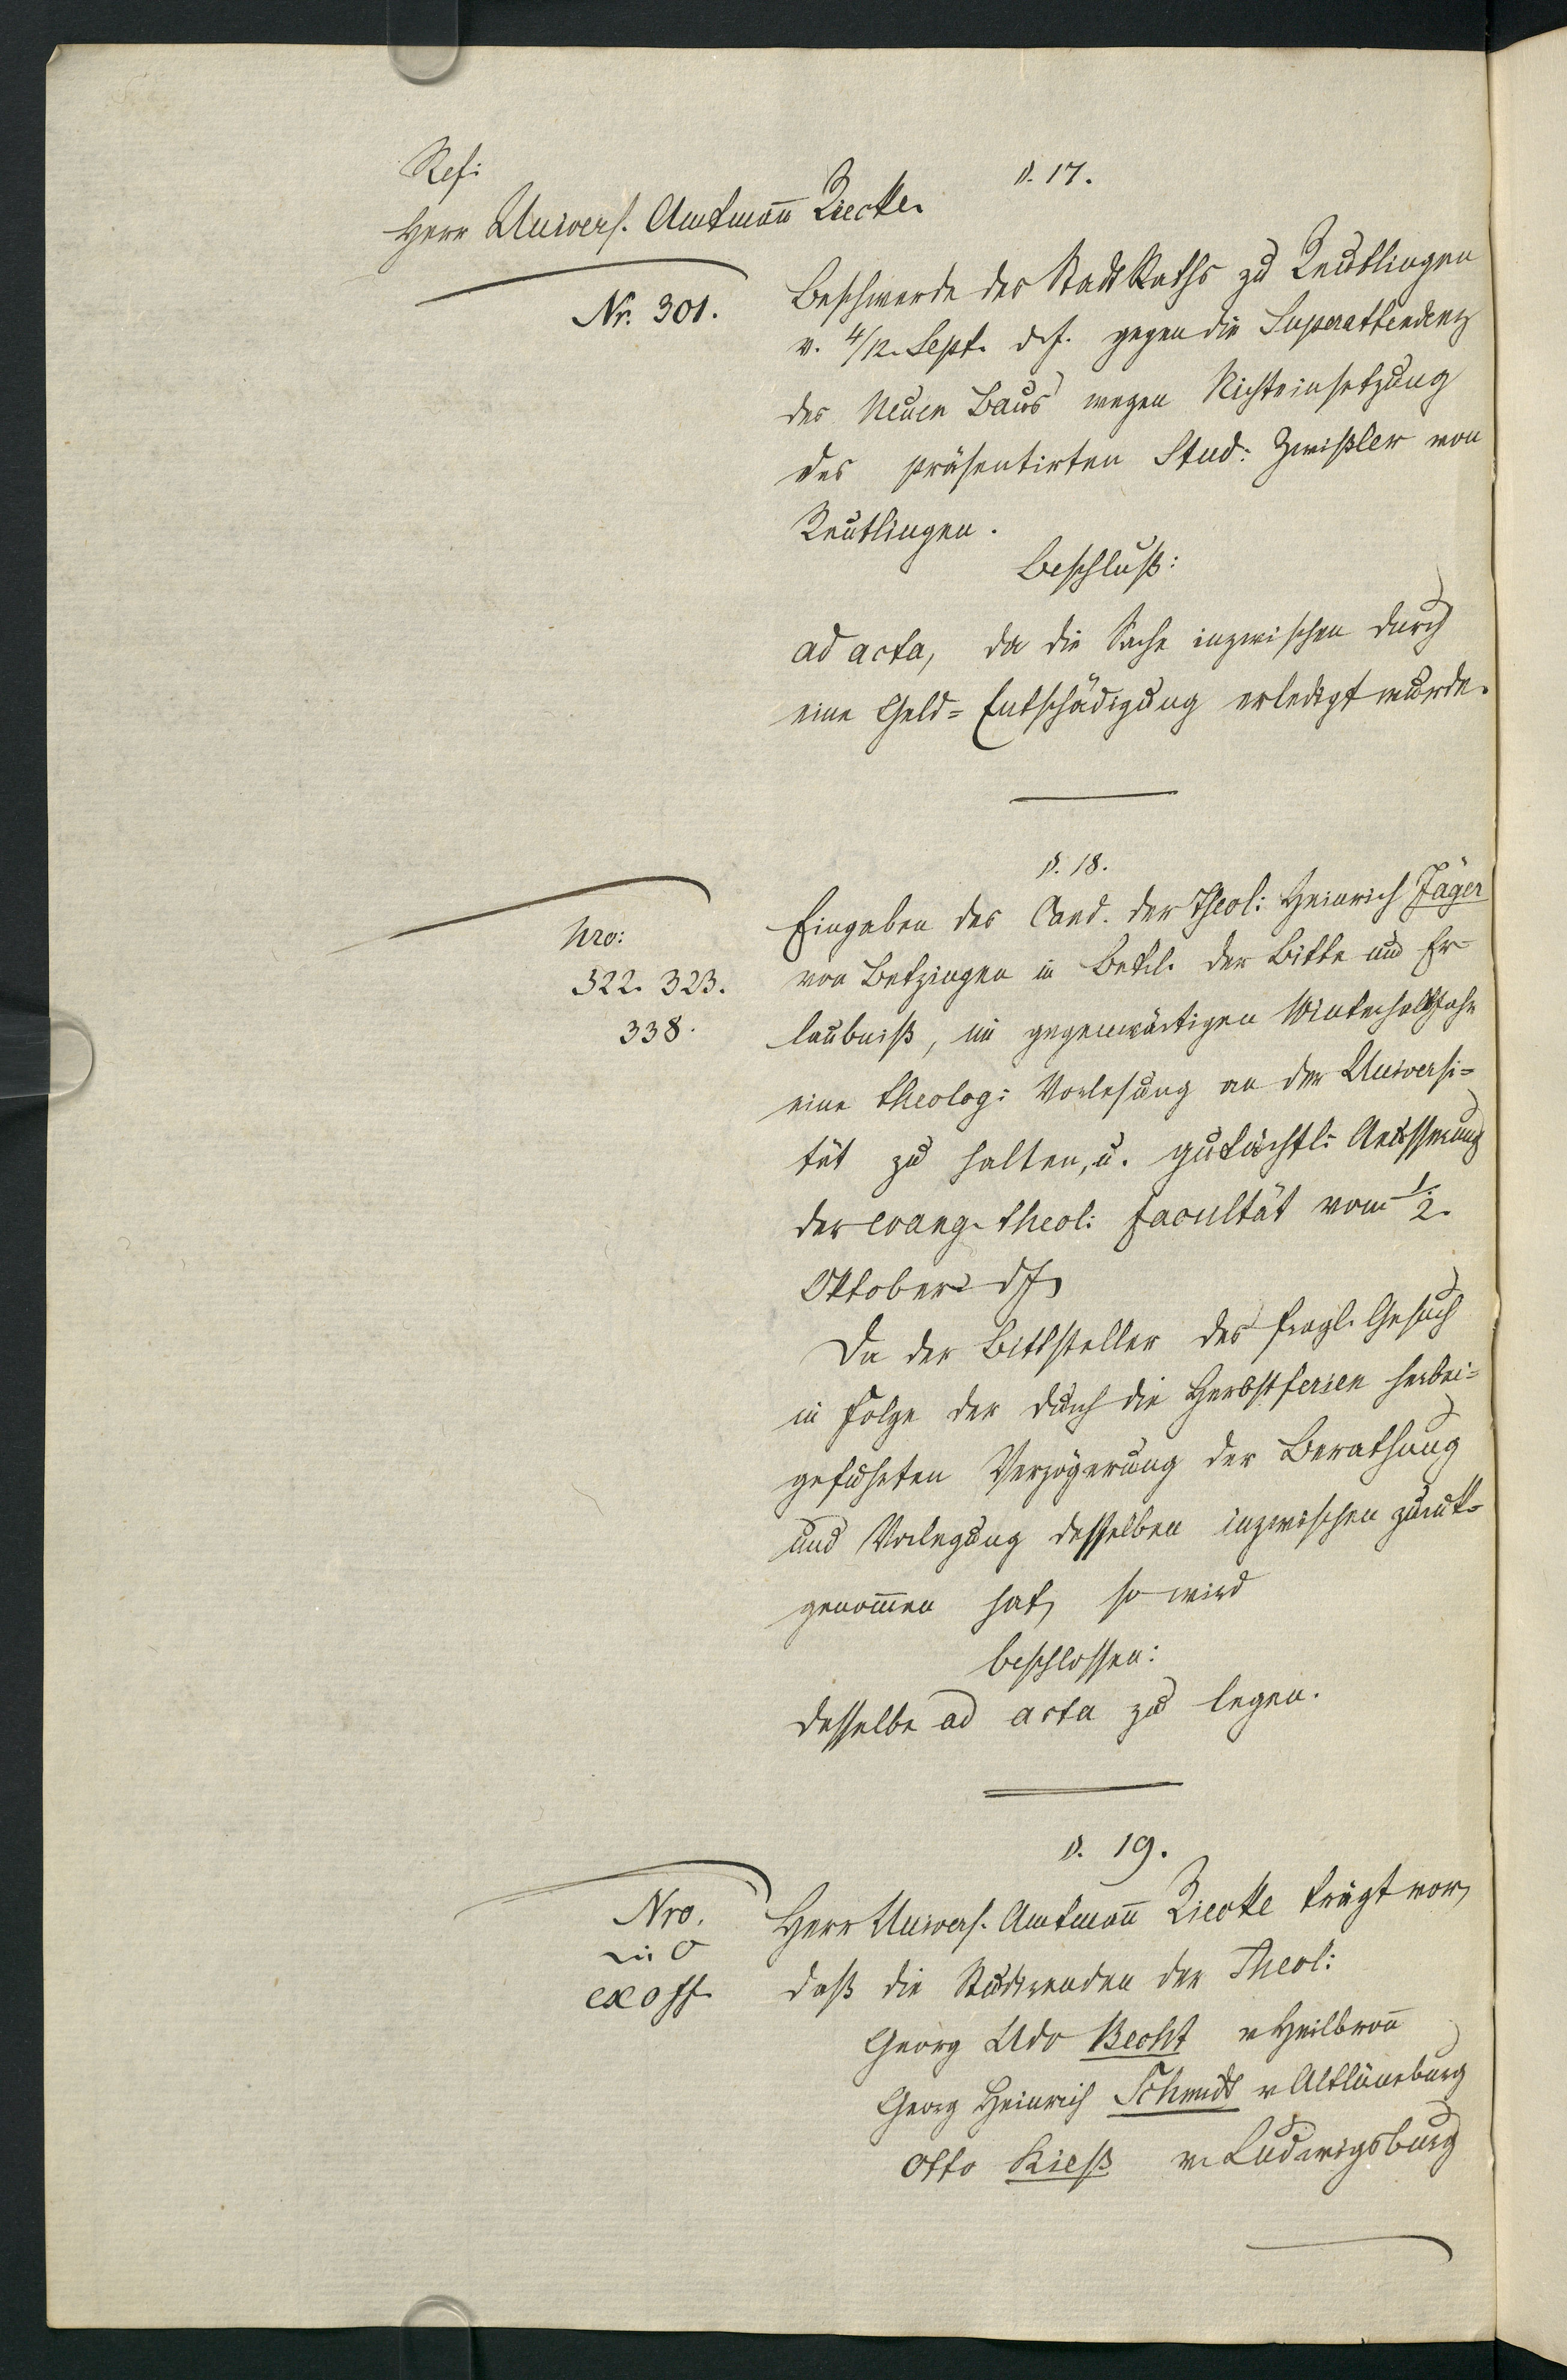 Ref:
Herr Univers. Amtmañ Riecke.
§. 17.
Nr. 301.
Beschwerde des StadtRaths zu Reutlingen
v. 4/12. Sept. d. J. gegen die Superattendenz
des Neuen Baus wegen Nichteinsetzung
des präsentirten Stud: Zwißler von
Reutlingen.
Beschluß:
ad acta, da die Sache inzwischen durch
eine Geld=Entschädigung erledigt wurde.
§. 18.
Nro:
322. 323.
338.
Eingaben des Cand. der Theol: Heinrich Jäger
von Betzingen in Betrl. der Bitte um Er-
laubniß, im gegenwärtigen Winterhalbjahr
eine theolog: Vorlesung an der Universi=
tät zu halten, u. gutächtl: Aeusserung
der evang. theol: Facultät vom 1/2.
Oktober d. J.
Da der Bittsteller das fragl. Gesuch
in Folge der durch die Herbstferien herbei=
geführten Verzögerung der Berathung
und Vorlegung desselben inzwischen zurük-
genom̄en hat, so wird
beschlossen:
dasselbe ad acta zu legen.
§. 19.
Nro.
exoff.
Herr Univers. Amtmañ Riecke trägt vor,
daß die Studirenden der Theol:
Georg Udo Becht v Heilbroñ
Georg Heinrich Schmidt v Altlüneburg
Otto Kieß v. Ludwigsburg